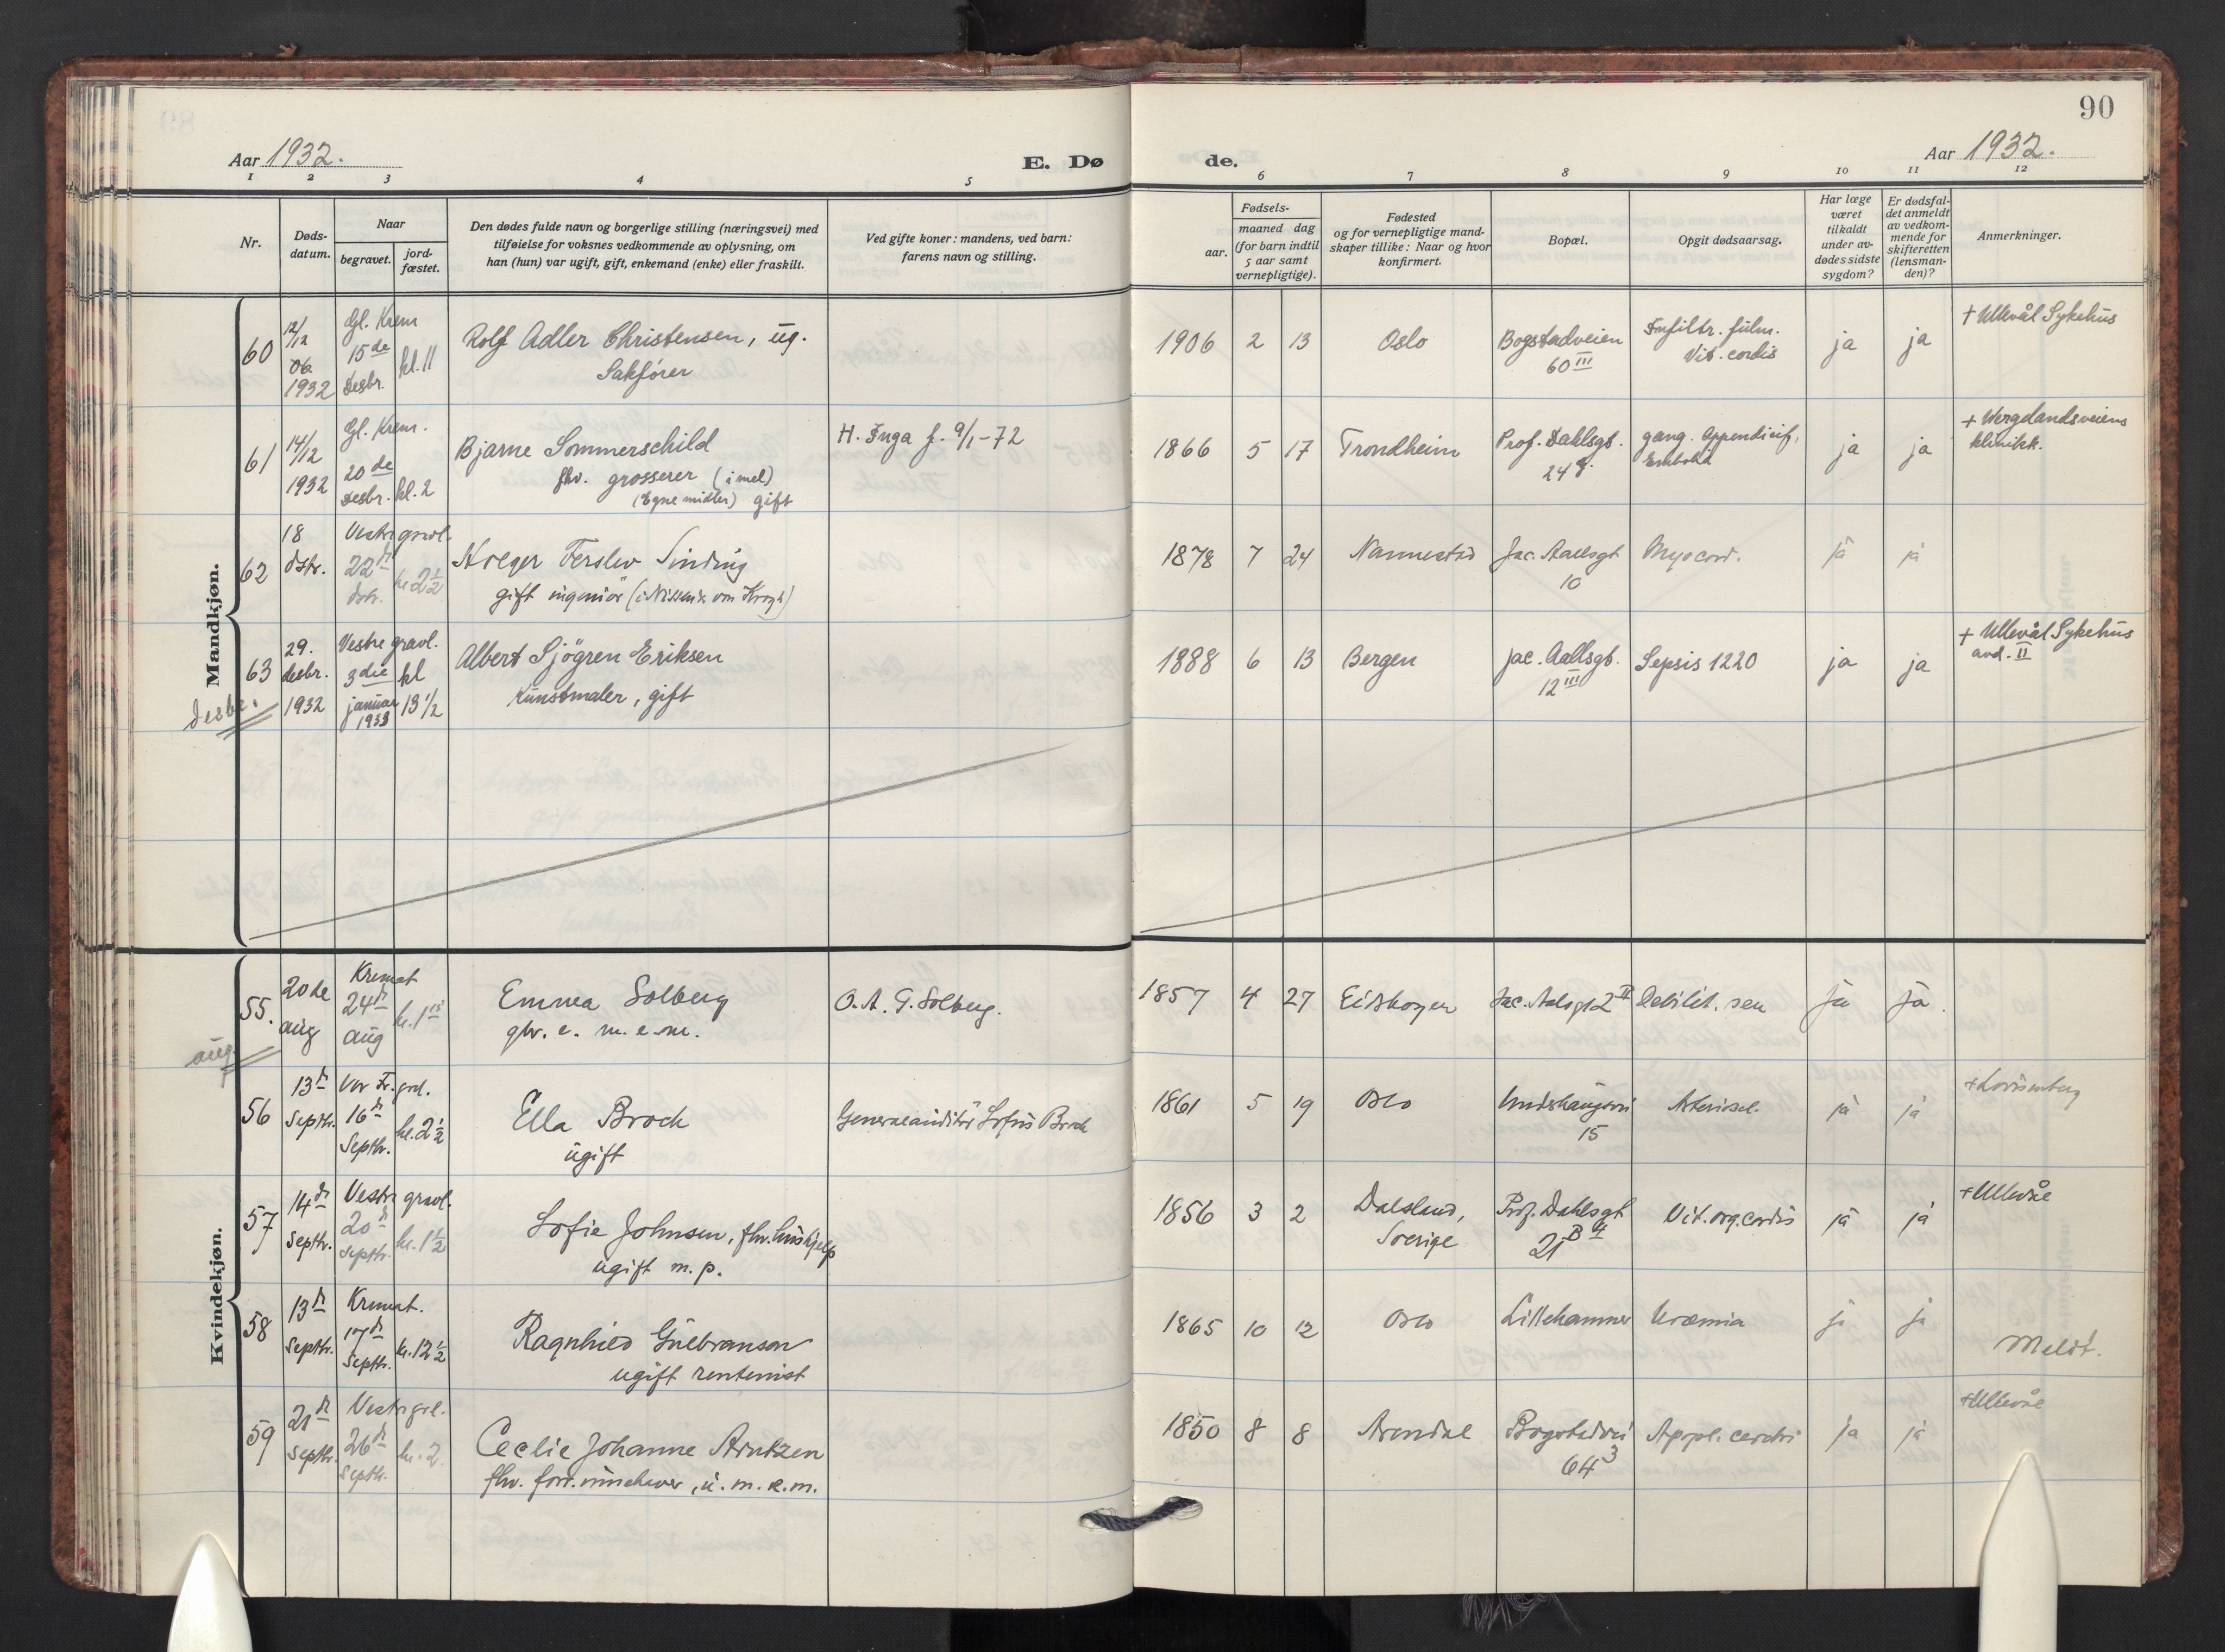 90
Aar 1932.
E. Dø
de.
Aar 1932.
1 2 3 4 5 6 7 8 9 10 11 12
Nr.
Døds-
datum.
Naar
begravet.
jord-
fæstet.
Den dødes fulde navn og borgerlige stilling (næringsvei) med
tilføielse for voksnes vedkommende av oplysning, om
han (hun) var ugift, gift, enkemand (enke) eller fraskilt.
Ved gifte koner: mandens, ved barn:
farens navn og stilling.
Fødsels-
aar.
maaned dag
(for barn indtil
5 aar samt
vernepligtige).
Fødested
og for vernepligtige mand-
skaper tillike: Naar og hvor
konfirmert.
Bopæl.
Opgit dødsaarsag.
Har læge
været
tilkaldt
under av-
dødes sidste
sygdom?
Er dødsfal-
det anmeldt
av vedkom-
mende for
skifteretten
(lensman-
den)?
Anmerkninger.
Mandkjøn.
60
12/12
06
1932
Gl. Krem
15de
Desbr.
kl. 11
Rolf Adler Christensen, ug.
Sakfører
1906 2 13 Oslo
Bogstadveien
60 III
Infiltr. pulm.
Vit. cordis
ja ja
+ Ullevål Sykehus
61
14/12
1932
Gl. Krem.
20de
Desbr. kl. 2
Bjarne Sommerschild
fhv. grosserer (i mel)
(Egne midler) gift
H. Inga f. 9/1-72
1866 5 17 Trondheim
Prof. Dahlsgt.
24
gang. Appendicit,
Emboli
ja ja
+ Wergelandsveiens
klinikk.
62
18
dsbr.
Vestre gravl.
22
dsbr.
kl. 2½
Ferslev Sinding
gift ingeniør
1878 7 24 Nannestad
Jac. Aallsgt
10
Myocard.
ja ja
63
desbr.
29.
desbr.
1932
Vestre gravl.
3die
januar
1933
kl
13½
Albert Sjögren Eriksen
Kunstmaler, gift
1888 6 13 Bergen
Jac. Aallsgt.
12 III
Sepsis 1220
ja ja
+ Ullevål Sykehus
avd. II
Kvindekjøn.
55.
aug.
20de
aug
Kremat
24
aug
kl. 1 15
Emma Solberg
ghv. e. m. e. m.
O. A. G. Solberg.
1857 4 27 Eidskogen
Jac. Aalsgt 2 II
Debilit. sen
ja ja
56
13
Septbr.
Vor Fr. grl.
16
Septbr.
kl. 2½
Ella Broch
ugift
Generalauditør Sofus Broch
1861 5 19 Oslo
15
Arterioscl.
ja ja
+ Lovisenberg
57
14
Septbr.
Vestre gravl.
20
Septbr.
kl. 1½
Sofie Johnsen, fhv. hushjelp
ugift m. p.
1856 3 2 Dalsland,
Sverige
Prof. Dahlsgt
21 B 4
Vit. org. cordis
ja ja
+ Ullevål
58
13
Septbr.
Kremat.
17
Septbr.
kl. 12½
Ragnhild Gulbranson
ugift rentenist
1865 10 12 Oslo
Lillehammer
Uræmia
ja ja
Meldt.
59
21
Septbr.
Vestre grl.
26
Septbr.
kl. 2
Cecilie Johanne Arntzen
fhv. forr. innehaver, u. m. e. m.
1850 8 8 Arendal
Bogstadvei
64 3
Apopl. cerebri
ja ja
+ Ullevål